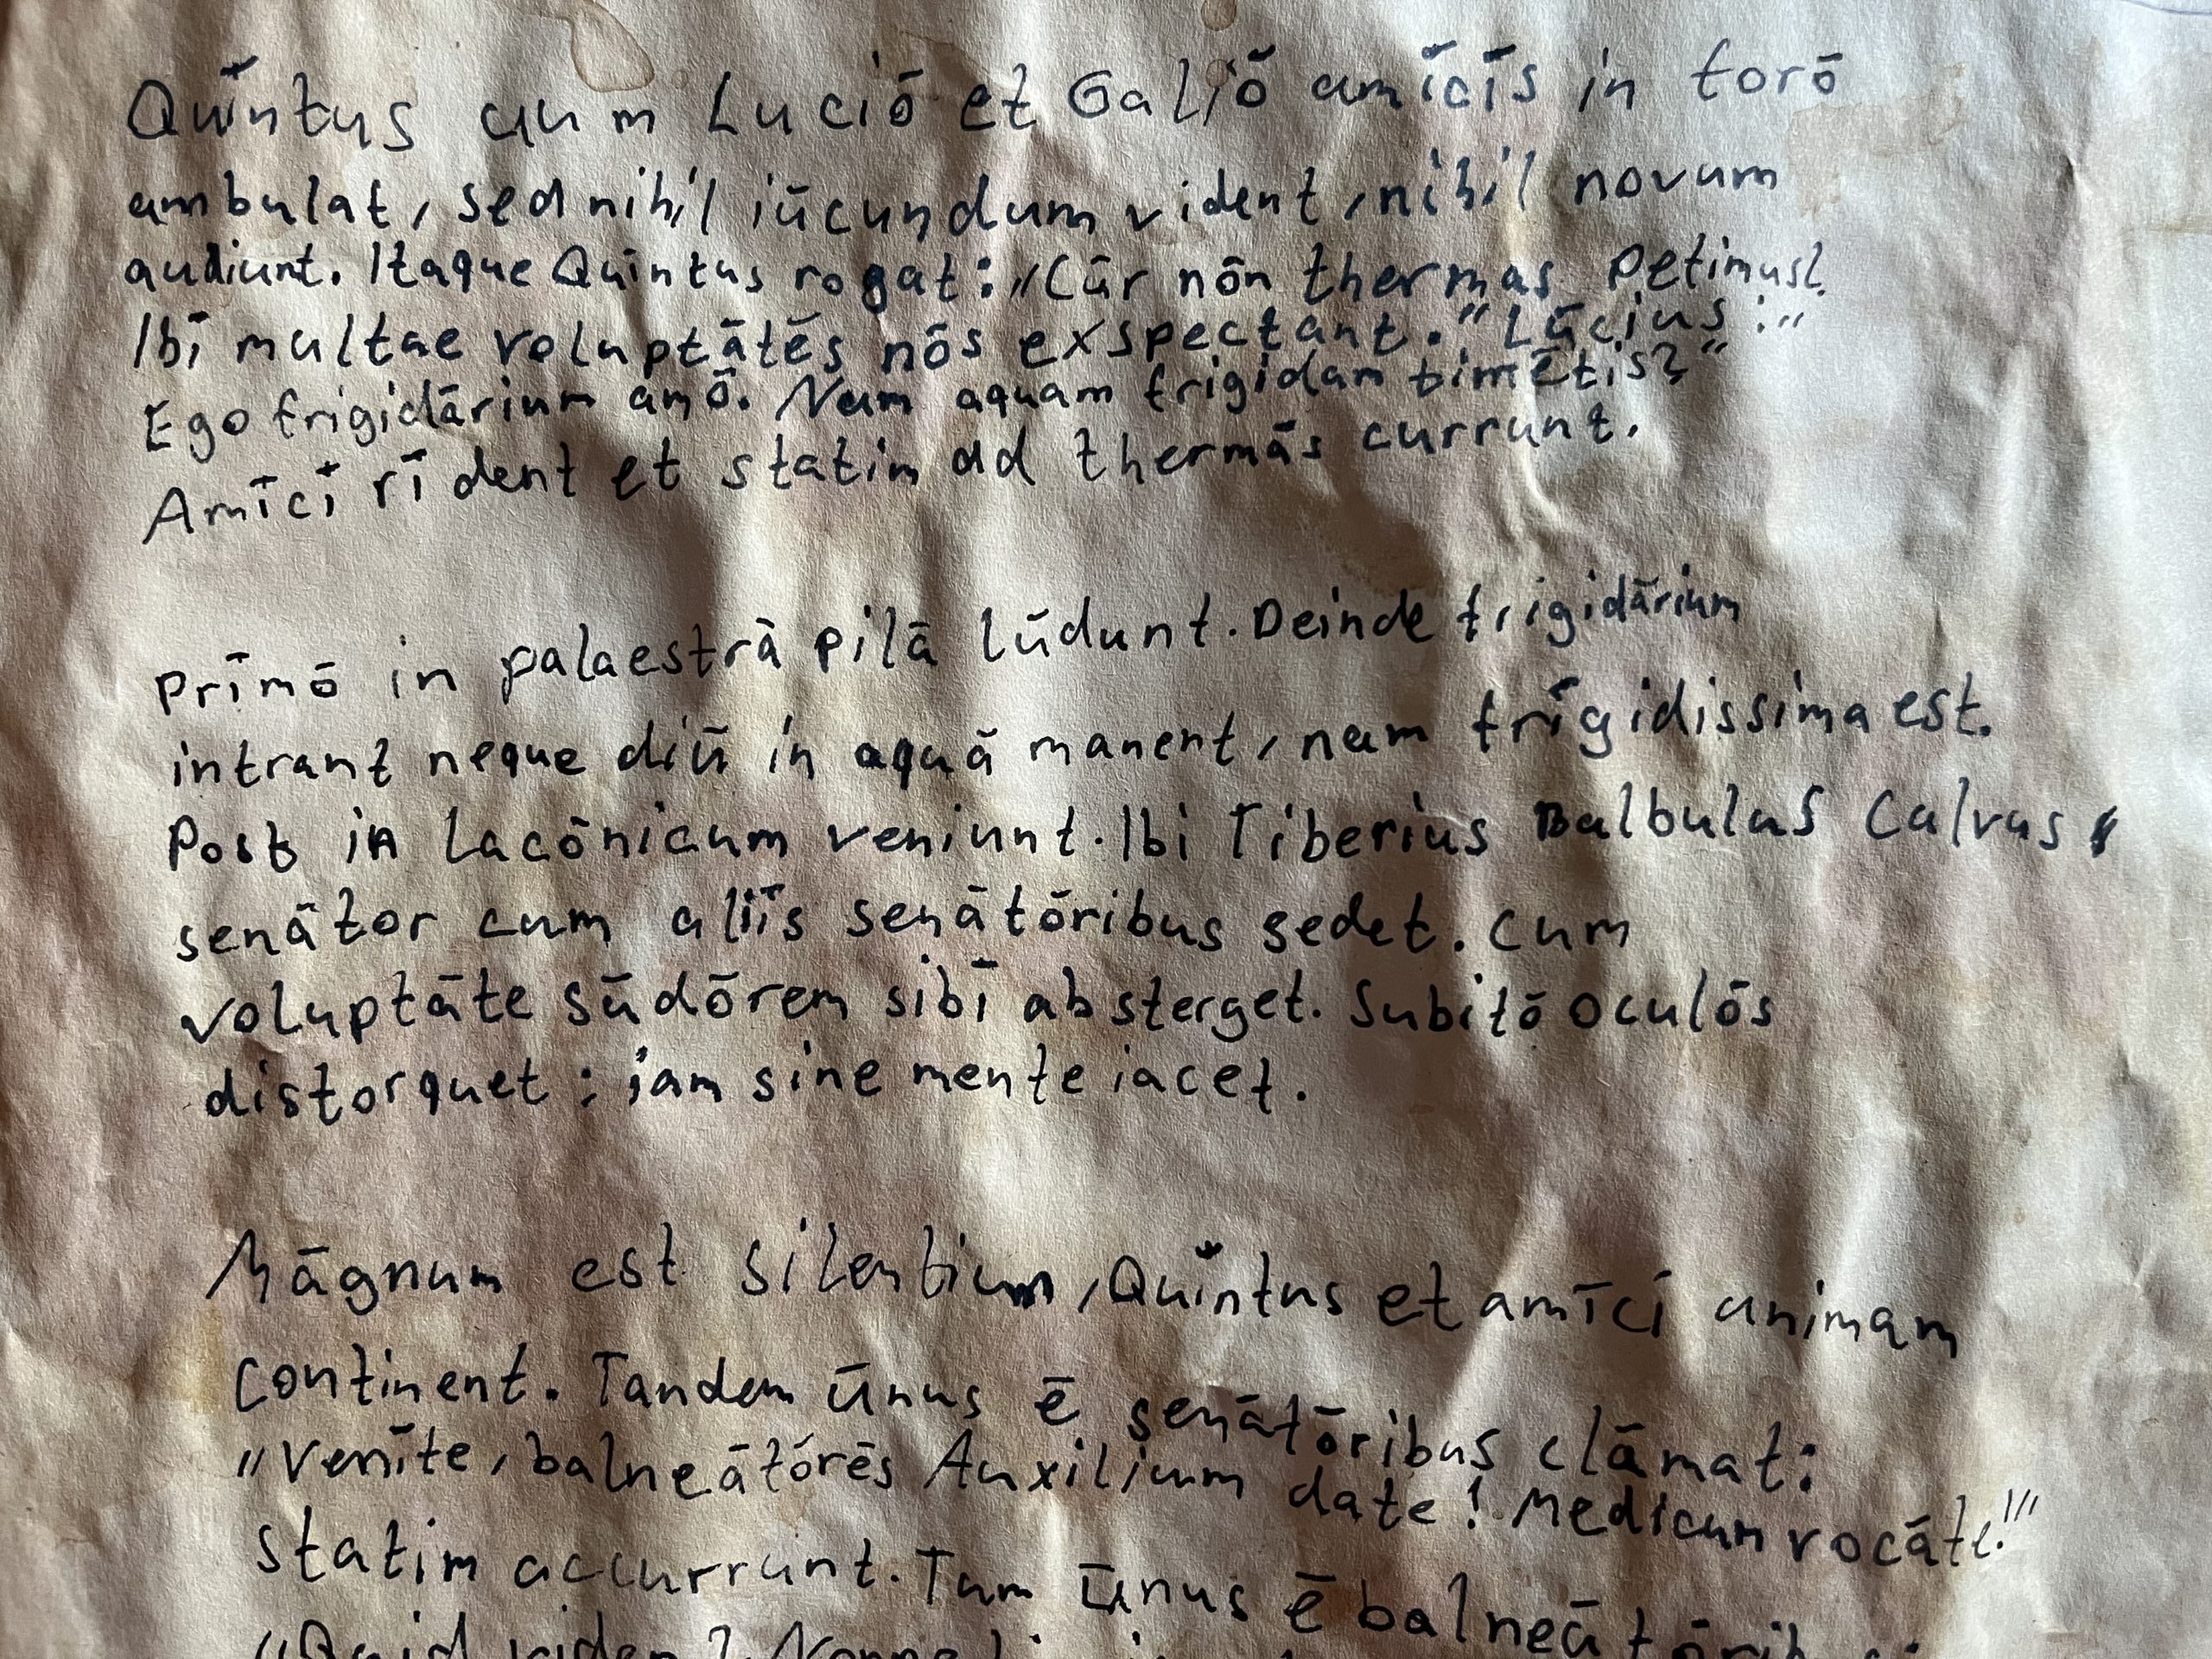 Quīntus cum Luciō et Galiō amīcīs in forō
ambulat, sed nihil iūcundum vident, nihil novum
audiunt. Itaque Quīntus rogat: „Cūr nōn thermas petimus?
Ibī multae voluptātēs nōs exspectant." Lūcius: „
Ego frigidārium amō. Num aquam frigidam timētis?"
Amīcī rīdent et statim ad thermās currunt.
Prīmō in palaestrā pilā lūdunt. Deinde frigidārium
intrant neque diū in aquā manent, nam frīgidissima est.
Post in Lacōnicum veniunt. Ibi Tiberius Balbulus Calvus,
senātor cum aliīs senātōribus sedet. Cum
voluptāte sūdōrem sibī absterget. Subitō oculōs
distorquet: iam sine mente iacet.
Māgnum est silentium, Quīntus et amīcī animam
continent. Tandem ūnus ē senātōribus clāmat:
„Venīte, balneātōrēs Auxilium date! Medicum vocāte!"
Statim accurrunt. Tum ūnus ē balneātōrib
„Quid